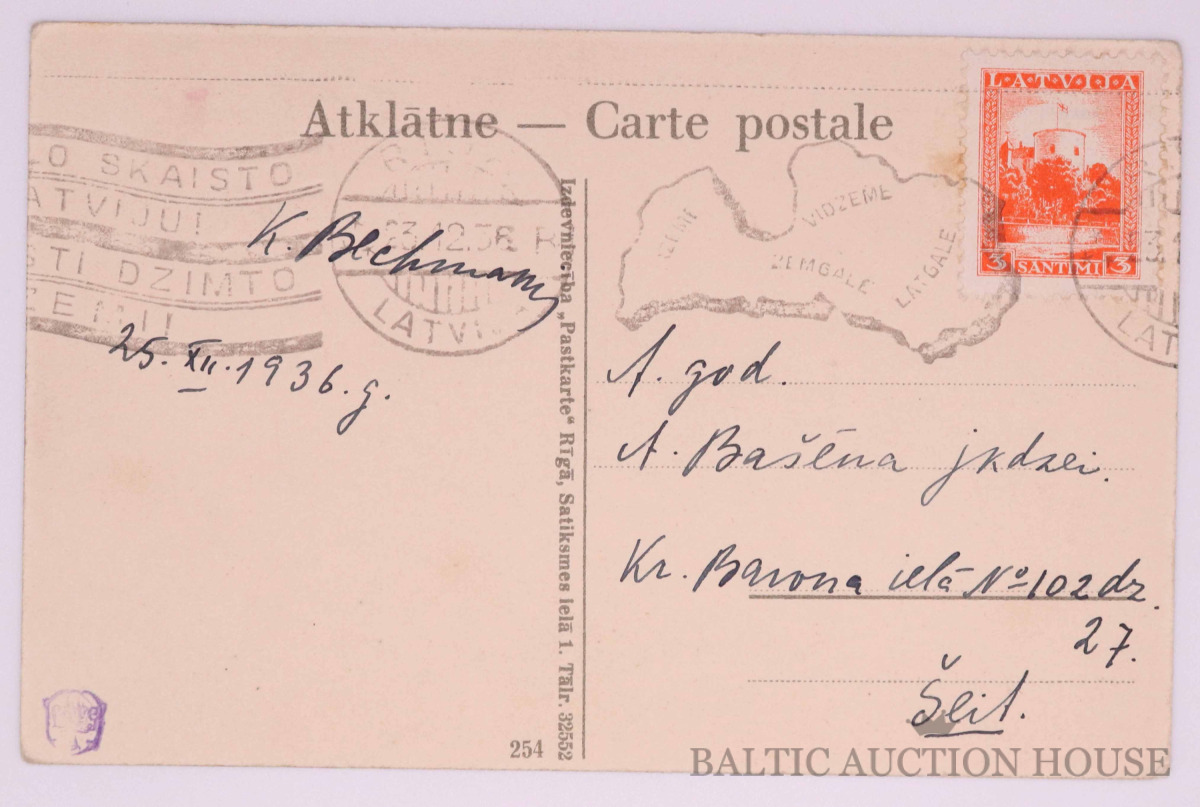 Atklātne — Carte postale
LATVIJA
3 SANTIMI 3
LO SKAISTO
ATVIJU!
STI DZIMTO
ZEMI!
23.12.36
LATVI
VIDZEME
ZEMGALE
LATGALE
K. Blechmann
25. XII. 1936. g.
A. god.
A. Bašēna jkdzei.
Kr. Barona ielā No 102 dz.
27.
Šeit.
Izdevniecība „Pastkarte“ Rīgā, Satiksmes ielā 1. Tālr. 32552
254
BALTIC AUCTION HOUSE